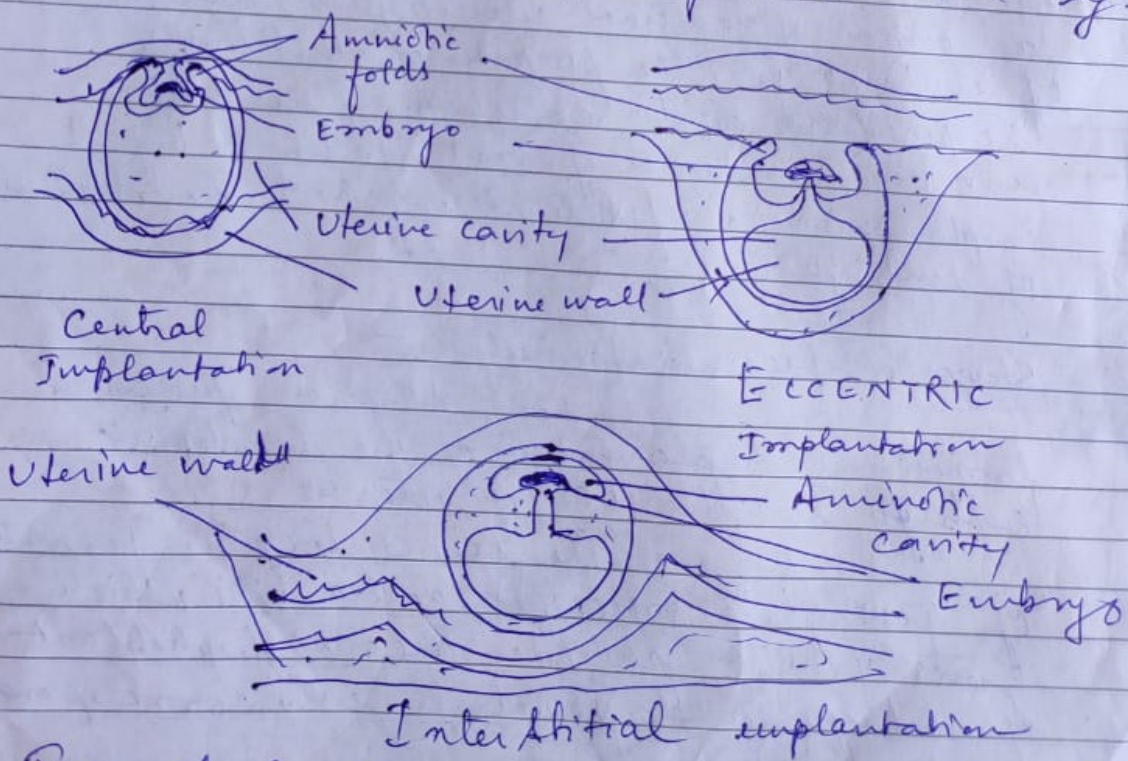 Amniotic
folds
Embryo
Uterine cavity
Uterine wall
Central
Implantation
ECCENTRIC
Implantation
Uterine wall
Aminotic
cavity
Embryo
Interstitial implantation